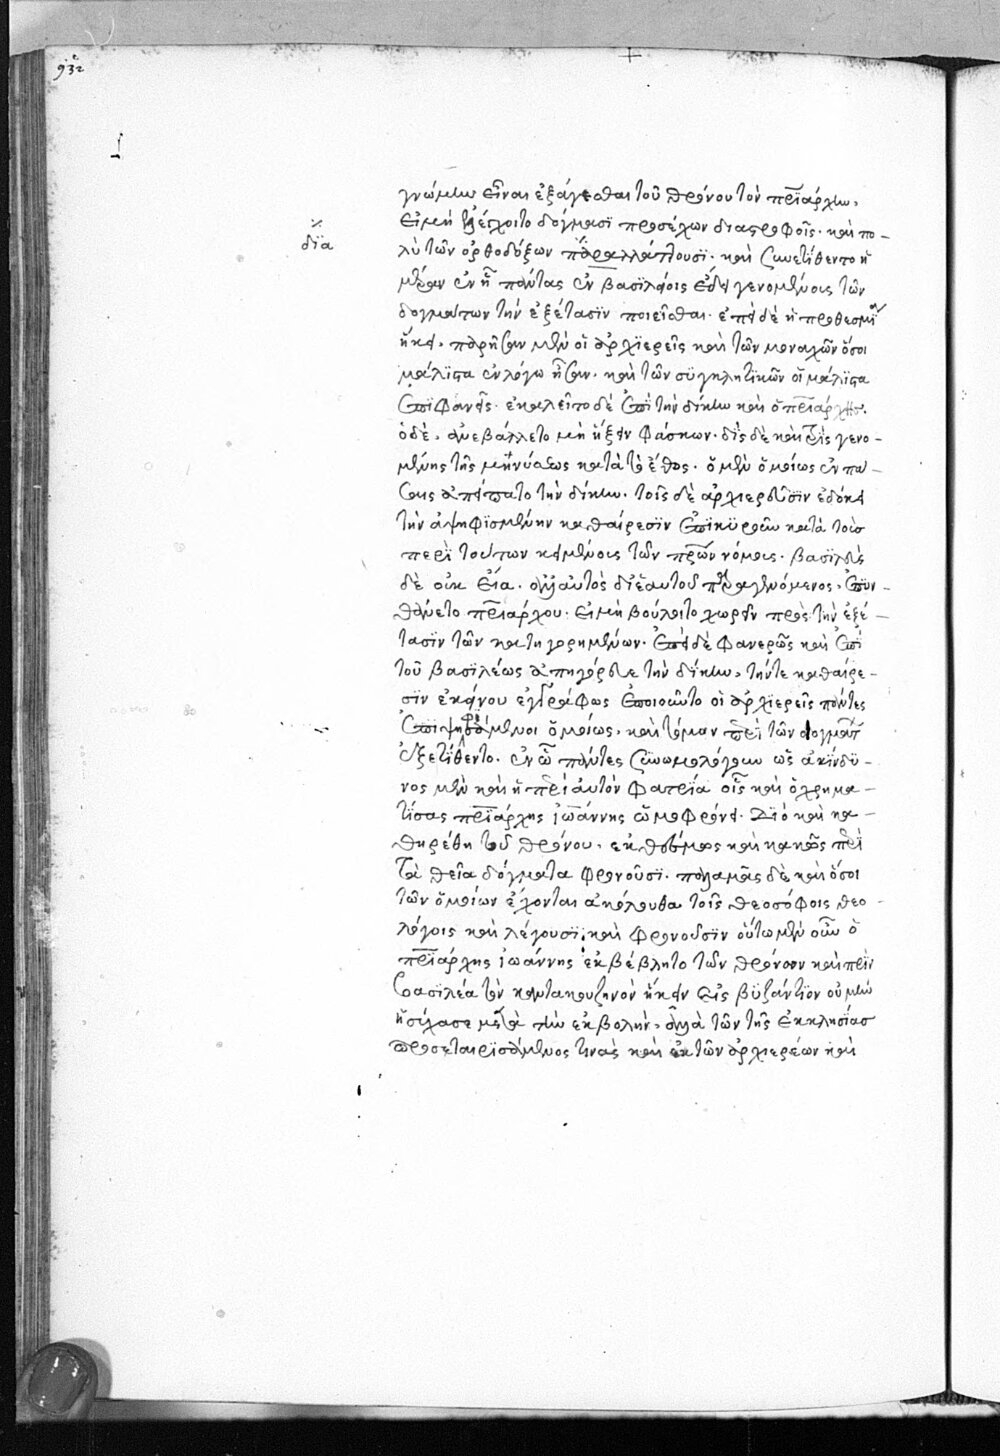 932
γνώμην εἶναι ἐξάγεσθαι τοῦ θρόνου τὸν πρϊάρχην,
εἰ μὴ ἀνέχοιτο δόγμασϊ προσέχων διαστρόφοις· καὶ πο-
δϊα
λὺ τῶν ὀρθοδόξων παραλλάττουσϊ· καὶ συνετίθεντο ἡ
μέραν ἐν ᾗ πάντας ἐν βασϊλείοις ἔδει γενομένους τῶν
δογμάτων τὴν ἐξέτασϊν ποιεῖσθαι· ἐπεὶ δὲ ἡ προθεσμία
ἧκε, παρῆσαν μὲν οἱ ἀρχϊερεῖς καὶ τῶν μοναχῶν ὅσοι
μάλϊστα ἐν λόγω ἦσαν· καὶ τῶν συγκλητϊκῶν οἱ μάλϊστα
ἐπϊφανεῖς· ἐκαλεῖτο δὲ ἐπὶ τὴν δίκην καὶ ὁ πρϊάρχης.
ὁ δὲ, ἀνεβάλλετο μὴ ἥξειν φάσκων· δὶς δὲ καὶ τρὶς γενο-
μένης τῆς μηνύσεως κατὰ τὸ ἔθος· ὁ μὲν ὁμοίως ἐν πά-
σαις ἀπείπατο τὴν δίκην· τοῖς δὲ ἀρχιερεῦσϊν ἐδόκει
τὴν ἀψηφϊσμένην καθαίρεσϊν ἐπϊκυροῦν κατὰ τοὺς
περὶ τούτων κειμένους τῶν πρων νόμους· βασϊλεὺς
δὲ οὐκ εἴα· ἀλλ' αὐτὸς δι' ἑαυτοῦ παραγενόμενος, ἐπυν-
θάνετο πρϊάρχου· εἰ μὴ βούλοιτο χωρεῖν πρὸς τὴν ἐξέ-
τασϊν τῶν κατηγορημένων· ἐπεὶ δὲ φανερῶς καὶ ἐπὶ
τοῦ βασϊλέως ἀπηγόρευε τὴν δίκην, τήν τε καθαίρε-
σϊν ἐκείνου ἐγγράφως ἐποιοῦντο οἱ ἀρχϊερεῖς πάντες
ἐπϊψηφισάμενοι ὁμοίως, καὶ τόμον περὶ τῶν δογμάτ
ἐξετίθεντο· ἐν ᾧ πάντες συνωμολόγουν ὡς ἀκίνδυ-
νος μὲν καὶ ἡ περὶ αὐτὸν φατρϊα οἷς καὶ ὁ χρημα-
τίσας πρϊάρχης ἰωάννης ὡμοφρόνει· Δϊὸ καὶ κα-
θηρέθη τοῦ θρόνου· ἐκθέσμως καὶ κακῶς περὶ
τὰ θεῖα δόγματα φρονοῦσϊ· παλαμᾶς δὲ καὶ ὅσοι
τῶν ὁμοίων ἔχονται ἀκόλουθα τοῖς θεοσόφοις θεο-
λόγοις καὶ λέγουσϊ, καὶ φρονοῦσϊν οὕτω μὲν οὖν ὁ
πρϊάρχης ἰωάννης ἐκβέβλητο τῶν θρόνων καὶ πρὶν
βασϊλέα τὸν καντακουζηνὸν ἥκειν εἰς βυζάντϊον οὐ μὴν
ἡσύχασε μετὰ τὴν ἐκβολὴν, ἀλλὰ τῶν τῆς ἐκκλησίας
προσεταιρϊσάμενος τινὰς καὶ ἐκ τῶν ἀρχϊερέων καὶ